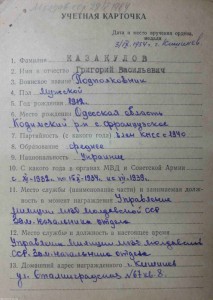 УЧЕТНАЯ КАРТОЧКА
Дата и место вручения ордена,
медали
г. Кишинев
1. Фамилия КАЗАКУЛОВ
2. Имя и отчество Григорий Васильевич
3. Воинское звание Подполковник
4. Пол Мужской
5. Год рождения
6. Место рождения Одесская область
Кодымский р-н
7. Партийность (с какого года) член КПСС с 1940
8. Образование среднее
9. Национальность Украинец
10. С какого года в органах МВД и Советской Армии
11. Место службы (наименование части) и занимаемая
должность в момент награждения Управление
милиции МВД Молдавской ССР
Зам. начальника отдела
12. Место службы и должность в настоящее время
Управление милиции МВД Молдавской
ССР Зам. начальника отдела
13. Домашний адрес награжденного г. Кишинев
ул. Сталинградская № 67 кв. 8.